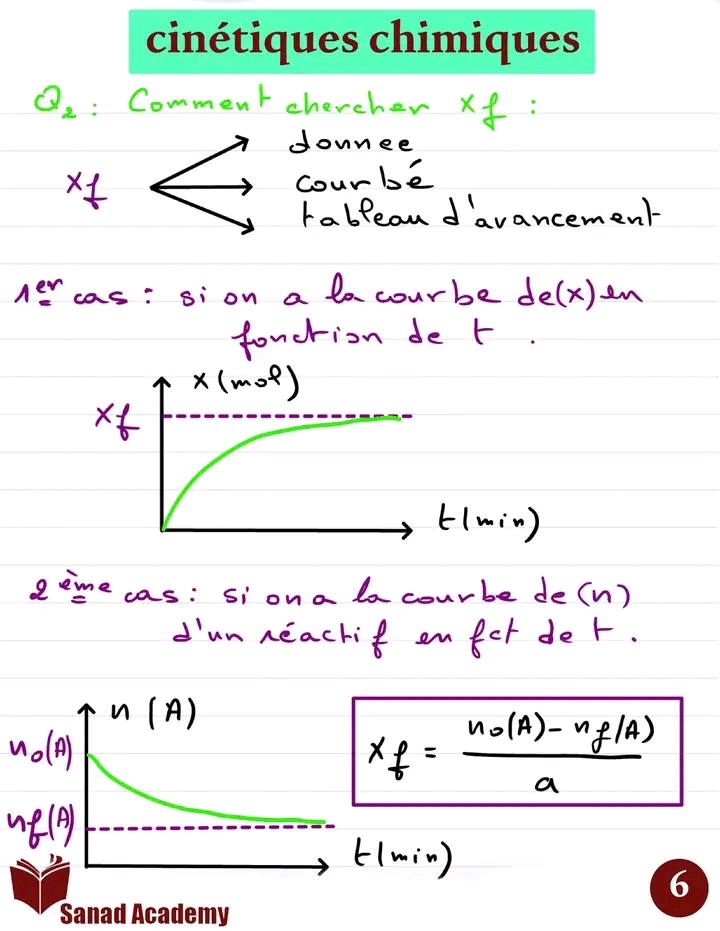 cinétiques chimiques
Q₂ : Comment chercher xf :
donnee
xf
courbé
tableau d'avancement
1er cas : si on a la courbe de(x) en
fonction de t .
x (mol)
xf
t(min)
2ème cas : si on a la courbe de (n)
d'un réactif en fct de t .
n (A)
n₀(A)
xf = n₀(A) - nf(A) / a
nf(A)
t(min)
6
Sanad Academy